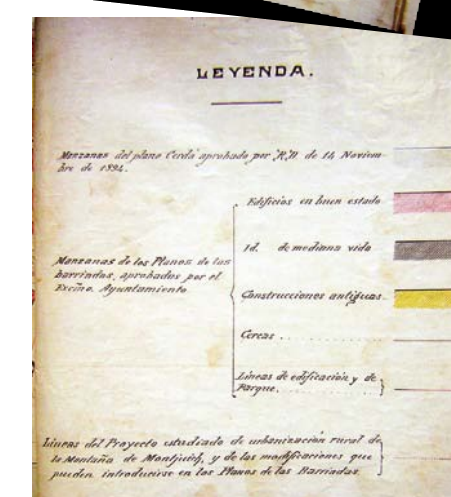 LEYENDA.
Manzanas del plano Cerdá aprobado por R.D. de 14 Noviem-
bre de 1894.
Edificios en buen estado
Manzanas de los Planos de las
barriadas, aprobados por el
Excmo. Ayuntamiento
Id. de mediana vida
Construcciones antiguas.
Cercas . . . . . . . . .
Líneas de edificación y de
Parque.
Lineas del Proyecto estudiado de urbanización rural de
la Montaña de Montjuich, y de las modificaciones que
pueden introducirse en los Planos de las Barriadas.